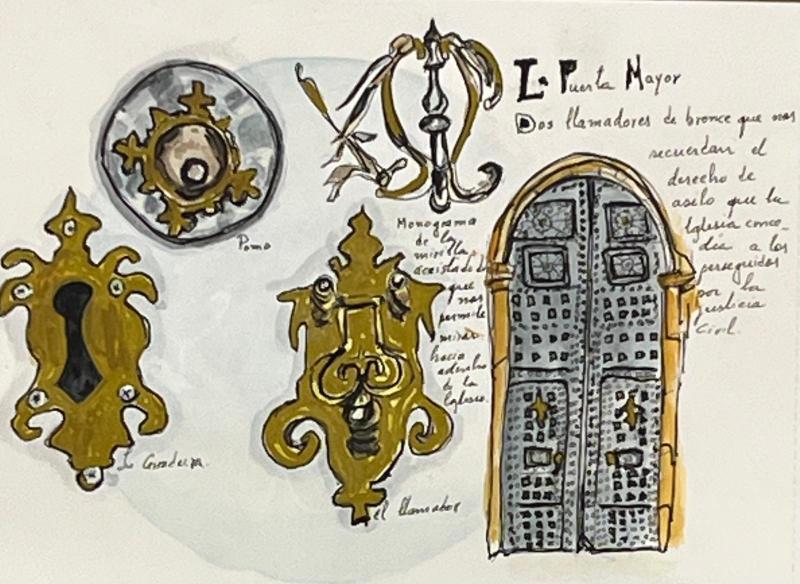 La Puerta Mayor
Dos llamadores de bronce que nos
recuerdan el
derecho de
asilo que la
Iglesia conce-
día a los
perseguidos
por la
justicia
Civil.
Pomo
Monograma
de la
mirilla
que
nos
permite
mirar
hacia
adentro
de la
Iglesia.
La Cerradura.
el llamador